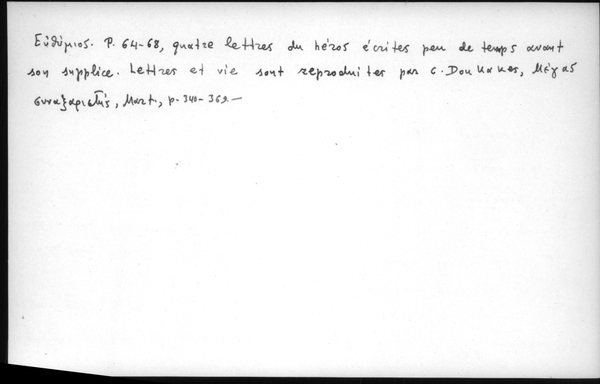 Εὐθύμιος. P. 64-68, quatre lettres du héros écrites peu de temps avant
son supplice. Lettres et vie sont reproduites par C. Doukakes, Μέγας
συναξαριστής, Mart., p. 340-362.—